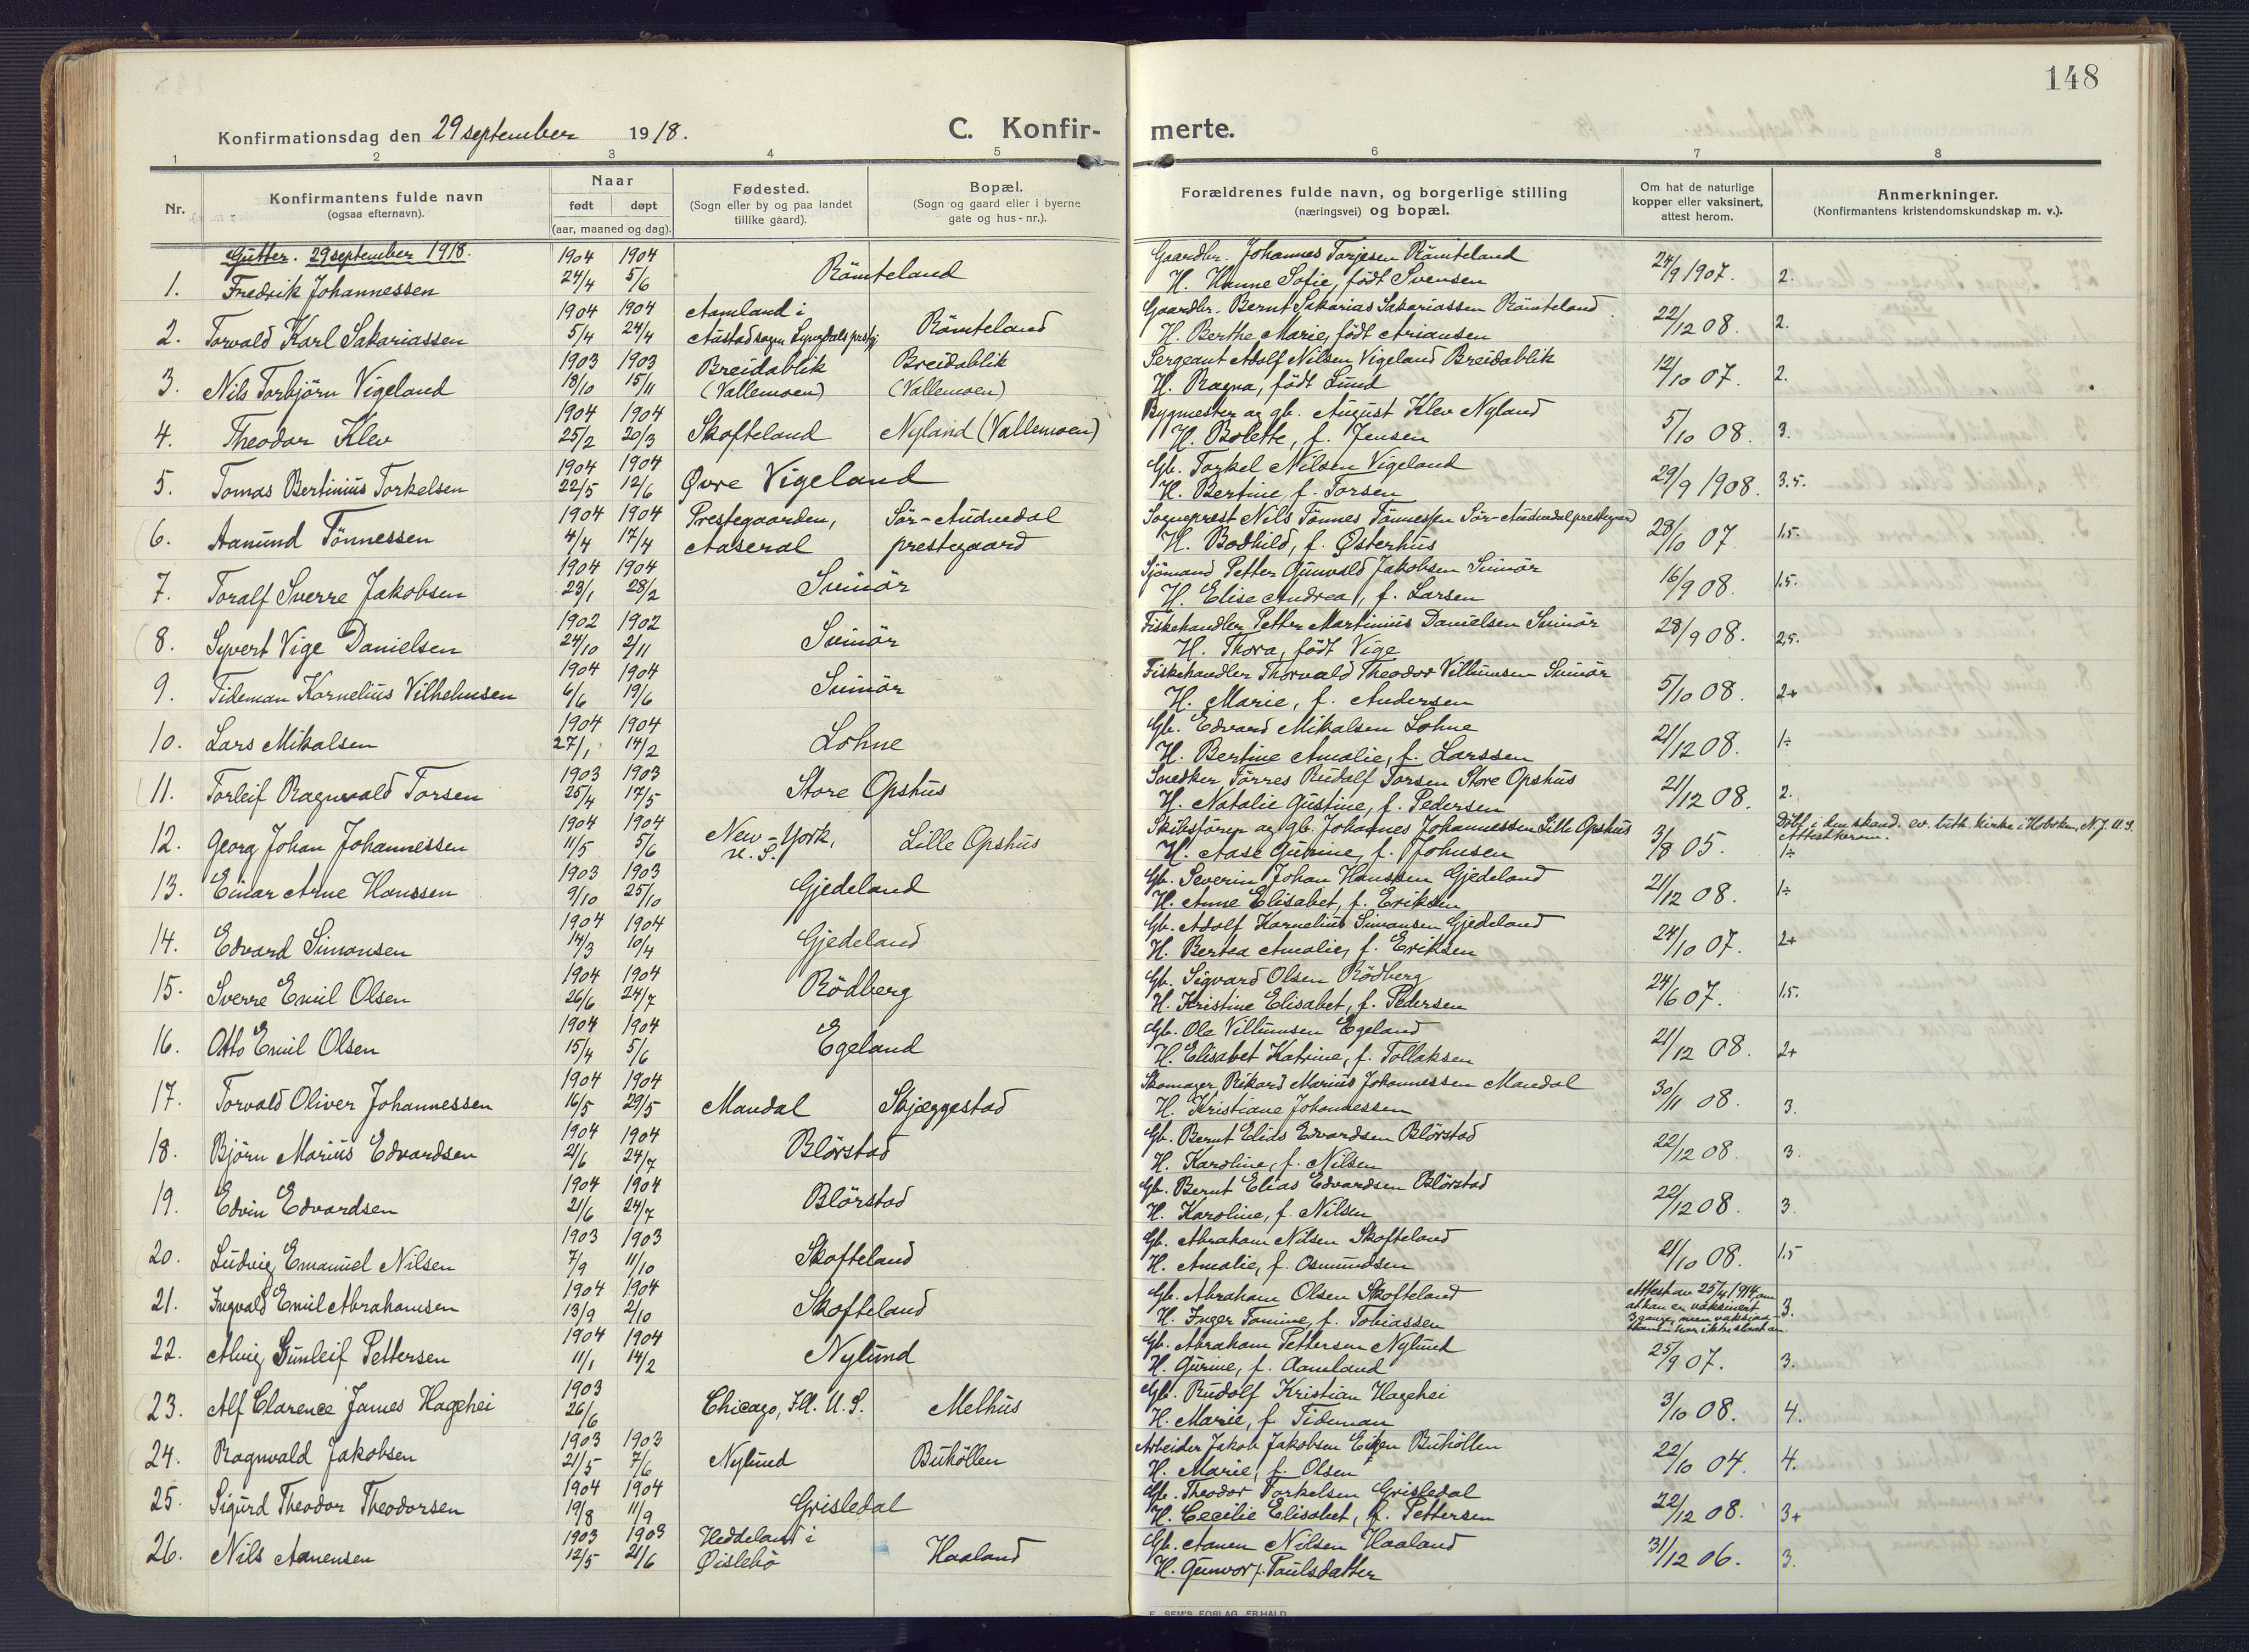 148
Konfirmationsdag den 29 september 1918. C. Konfirmerte.
1 2 3 4 5 6 7 8
Nr.
Konfirmantens fulde navn
(ogsaa efternavn).
Naar
født døpt
(aar, maaned og dag).
Fødested.
(Sogn eller by og paa landet
tillike gaard).
Bopæl.
(Sogn og gaard eller i byerne
gate og hus-nr.).
Forældrenes fulde navn, og borgerlige stilling
(næringsvei) og bopæl.
Om hat de naturlige
kopper eller vaksinert,
attest herom.
Anmerkninger.
(Konfirmantens kristendomskundskap m. v.).
Gutter. 29 september 1918.
1. Fredrik Johannessen 1904 24/4 1904 5/6 Römteland Gaardbr. Johannes Torjesen Römteland
H. Hanne Sofie, født Svensen 24/9 1907. 2.
2. Torvald Karl Sakariassen 1904 5/4 1904 24/4 Aamland i
Austad sogn Lyngdals prstgj. Römteland Gaardbr. Bernt Sakarias Sakariassen Römteland
H. Berthe Marie, født Ariansen 22/12 08. 2.
3. Nils Torbjörn Vigeland 1903 18/10 1903 15/11 Breidablik
(Vallemoen) Breidablik
(Vallemoen) Sergeant Adolf Nilsen Vigeland Breidablik
H. Ragna, født Lund 12/10 07. 2.
4. Theodor Klev 1904 25/2 1904 20/3 Skofteland Nyland (Vallemoen) Bygmester og gb. August Klev Nyland
H. Bolette, f. Jensen 5/10 08. 3.
5. Tomas Bertinius Torkelsen 1904 22/5 1904 12/6 Øvre Vigeland Gb. Torkel Nilsen Vigeland
H. Bertine, f. Torsen 29/9 1908. 3.5.
6. Aanund Tönnessen 1904 4/4 1904 17/4 Prestegaarden,
Aaseral Sör-Audnedal
prestegaard Sogneprest Nils Tönnes Tönnessen Sör-Audnedal prestegaard
H. Bodhild, f. Østerhus 28/10 07. 1.5.
7. Toralf Sverre Jakobsen 1904 23/1 1904 28/2 Svinör Sjömand Petter Gunvald Jakobsen Svinör
H. Elise Andrea, f. Larsen 16/9 08. 1.5.
8. Syvert Vige Danielsen 1902 24/10 1902 2/11 Svinör Fiskehandler Petter Martinius Danielsen Svinör
H. Thora, født Vige 28/9 08. 2.5.
9. Tideman Kornelius Vilhelmsen 1904 6/6 1904 19/6 Svinör Fiskehandler Thorvald Theodor Villumsen Svinör
H. Marie, f. Andersen 5/10 08. 2+
10. Lars Mikalsen 1904 27/1 1904 14/2 Lohne Gb. Edvard Mikalsen Lohne
H. Bertine Amalie, f. Larssen 21/12 08. 1÷
11. Torleif Ragnvald Torsen 1903 25/4 1903 17/5 Store Opshus Snedker Törres Rudolf Torsen Store Opshus
H. Natalie Gustine, f. Pedersen 21/12 08. 2.
12. Georg Johan Johannessen 1904 11/5 1904 5/6 New-York,
U. S. Lille Opshus Skibsförer og gb. Johannes Johannessen Lille Opshus
H. Aase Gurine, f. Johnsen 3/8 05. Döbt i den skand. ev. luth. kirke i Hoboken, N.J. U.S.
Attest herom.
1÷
13. Einar Arne Hanssen 1903 9/10 1903 25/10 Gjedeland Gb. Severin Johan Hanssen Gjedeland
H. Anne Elisabet, f. Eriksen 21/12 08. 1÷
14. Edvard Simonsen 1904 14/3 1904 10/4 Gjedeland Gb. Adolf Kornelius Simonsen Gjedeland
H. Bertea Amalie, f. Eriksen 24/10 07. 2+
15. Sverre Emil Olsen 1904 26/6 1904 24/7 Rödberg Gb. Sigvard Olsen Rödberg
H. Kristine Elisabet, f. Pedersen 24/6 07. 1.5.
16. Otto Emil Olsen 1904 15/4 1904 5/6 Egeland Gb. Ole Villumsen Egeland
H. Elisabet Katrine, f. Tollaksen 21/12 08. 2+
17. Torvald Oliver Johannessen 1904 16/5 1904 29/5 Mandal Skjæggestad Skomager Rikard Marius Johannessen Mandal
H. Kristiane Johannessen 30/11 08. 3.
18. Björn Marius Edvardsen 1904 21/6 1904 24/7 Blörstad Gb. Bernt Elias Edvardsen Blörstad
H. Karoline, f. Nilsen 22/12 08. 3.
19. Edvin Edvardsen 1904 21/6 1904 24/7 Blörstad Gb. Bernt Elias Edvardsen Blörstad
H. Karoline, f. Nilsen 22/12 08. 3.
20. Ludvig Emanuel Nilsen 1903 7/9 1903 11/10 Skofteland Gb. Abraham Nilsen Skofteland
H. Amalie, f. Osmundsen 21/10 08. 1.5
21. Ingvald Emil Abrahamsen 1904 13/9 1904 2/10 Skofteland Gb. Abraham Olsen Skofteland
H. Inger Tomine, f. Tobiassen Attest av 25/4 1914, om
at han er vaksinert
3 gange, men vaksina-
tionen har ikke slaat an. 3.
22. Alvig Gunleif Pettersen 1904 11/1 1904 14/2 Nylund Gb. Abraham Pettersen Nylund
H. Gurine, f. Aamland 25/9 07. 3.
23. Alf Clarence James Hagehei 1903 26/6 Chicago, Ill. U. S. Melhus Gb. Rudolf Kristian Hagehei
H. Marie, f. Tideman 3/10 08. 4.
24. Ragnvald Jakobsen 1903 21/5 1903 7/6 Nylund Buhöllen Arbeider Jakob Jakobsen Buhöllen
H. Marie, f. Olsen 22/10 04. 4.
25. Sigurd Theodor Theodorsen 1904 19/8 1904 11/9 Grisledal Gb. Theodor Torkelsen Grisledal
H. Cecilie Elisabet, f. Pettersen 22/12 08. 3+
26. Nils Aanensen 1903 12/5 1903 21/6 Heddeland i
Øislebö Haaland Gb. Aanen Nilsen Haaland
H. Gunvor f. Paulsdatter 31/12 06. 3.
E. SEM'S FORLAG, FR.HALD